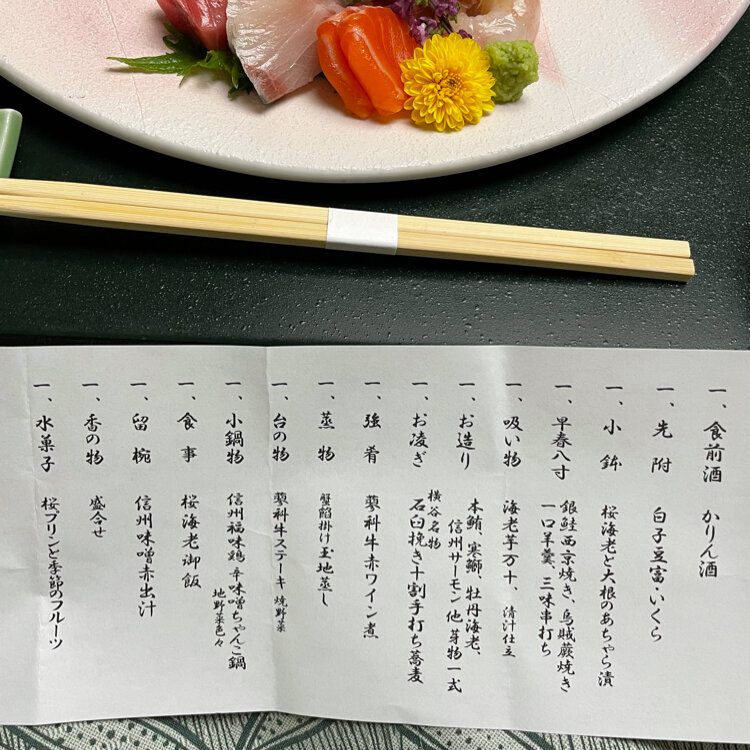 一、食前酒 かりん酒
一、先附 白子豆富・いくら
一、小鉢 桜海老と大根のあちゃら漬
一、早春八寸 銀鮭西京焼き、烏賊蕨焼き
一口羊羹、三味串打ち
一、吸い物 海老芋万十、清汁仕立
一、お造り 本鮪、寒鰤、牡丹海老、
信州サーモン他 芽物一式
一、お凌ぎ 横谷名物
石臼挽き十割手打ち蕎麦
一、強肴 蓼科牛赤ワイン煮
一、蒸物 蟹餡掛け玉地蒸し
一、台の物 蓼科牛ステーキ 焼野菜
一、小鍋物 信州福味鶏 辛味噌ちゃんこ鍋
地野菜色々
一、食事 桜海老御飯
一、留椀 信州味噌赤出汁
一、香の物 盛合せ
一、水菓子 桜プリンと季節のフルーツ